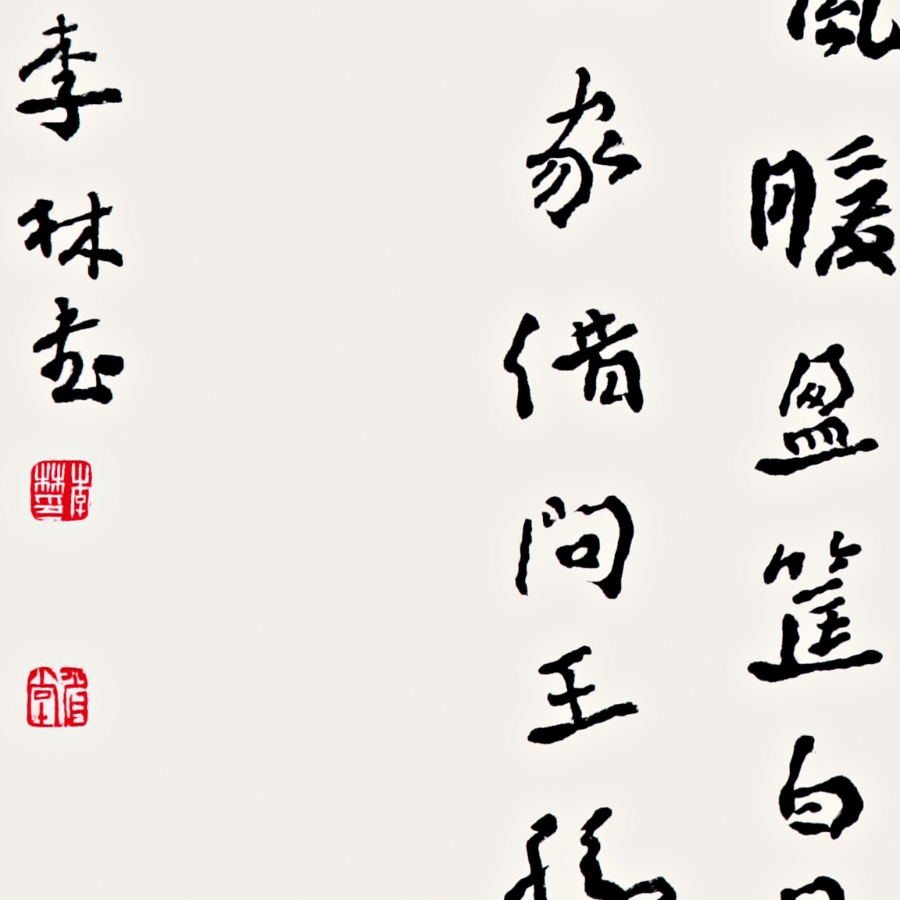 風暖盈筐白
家借問王
李林書